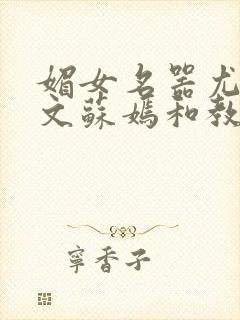 媚女名器尤
文蘇媽和教
寧香子